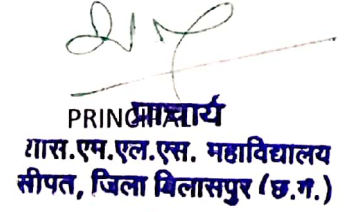 PRINCIPAL
प्राचार्य
शास.एम.एल.एस. महाविद्यालय
सीपत, जिला बिलासपुर (छ.ग.)